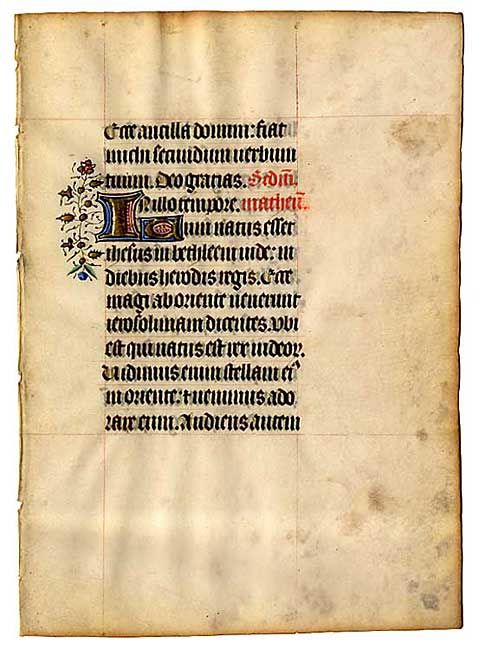 Ecce ancilla domini: fiat
michi secundum verbum
tuum. Deo gratias. Scdm̄.
In illo tempore. matheū.
Cum natus esset
ihesus in bethleem iude: in
diebus herodis regis. Ecce
magi ab oriente venerunt
ierosolimam dicentes. Vbi
est qui natus est rex iudeor.
Uidimus enim stellam ei⁹
in oriente: ⁊ venimus ado
rare eum. Audiens autem